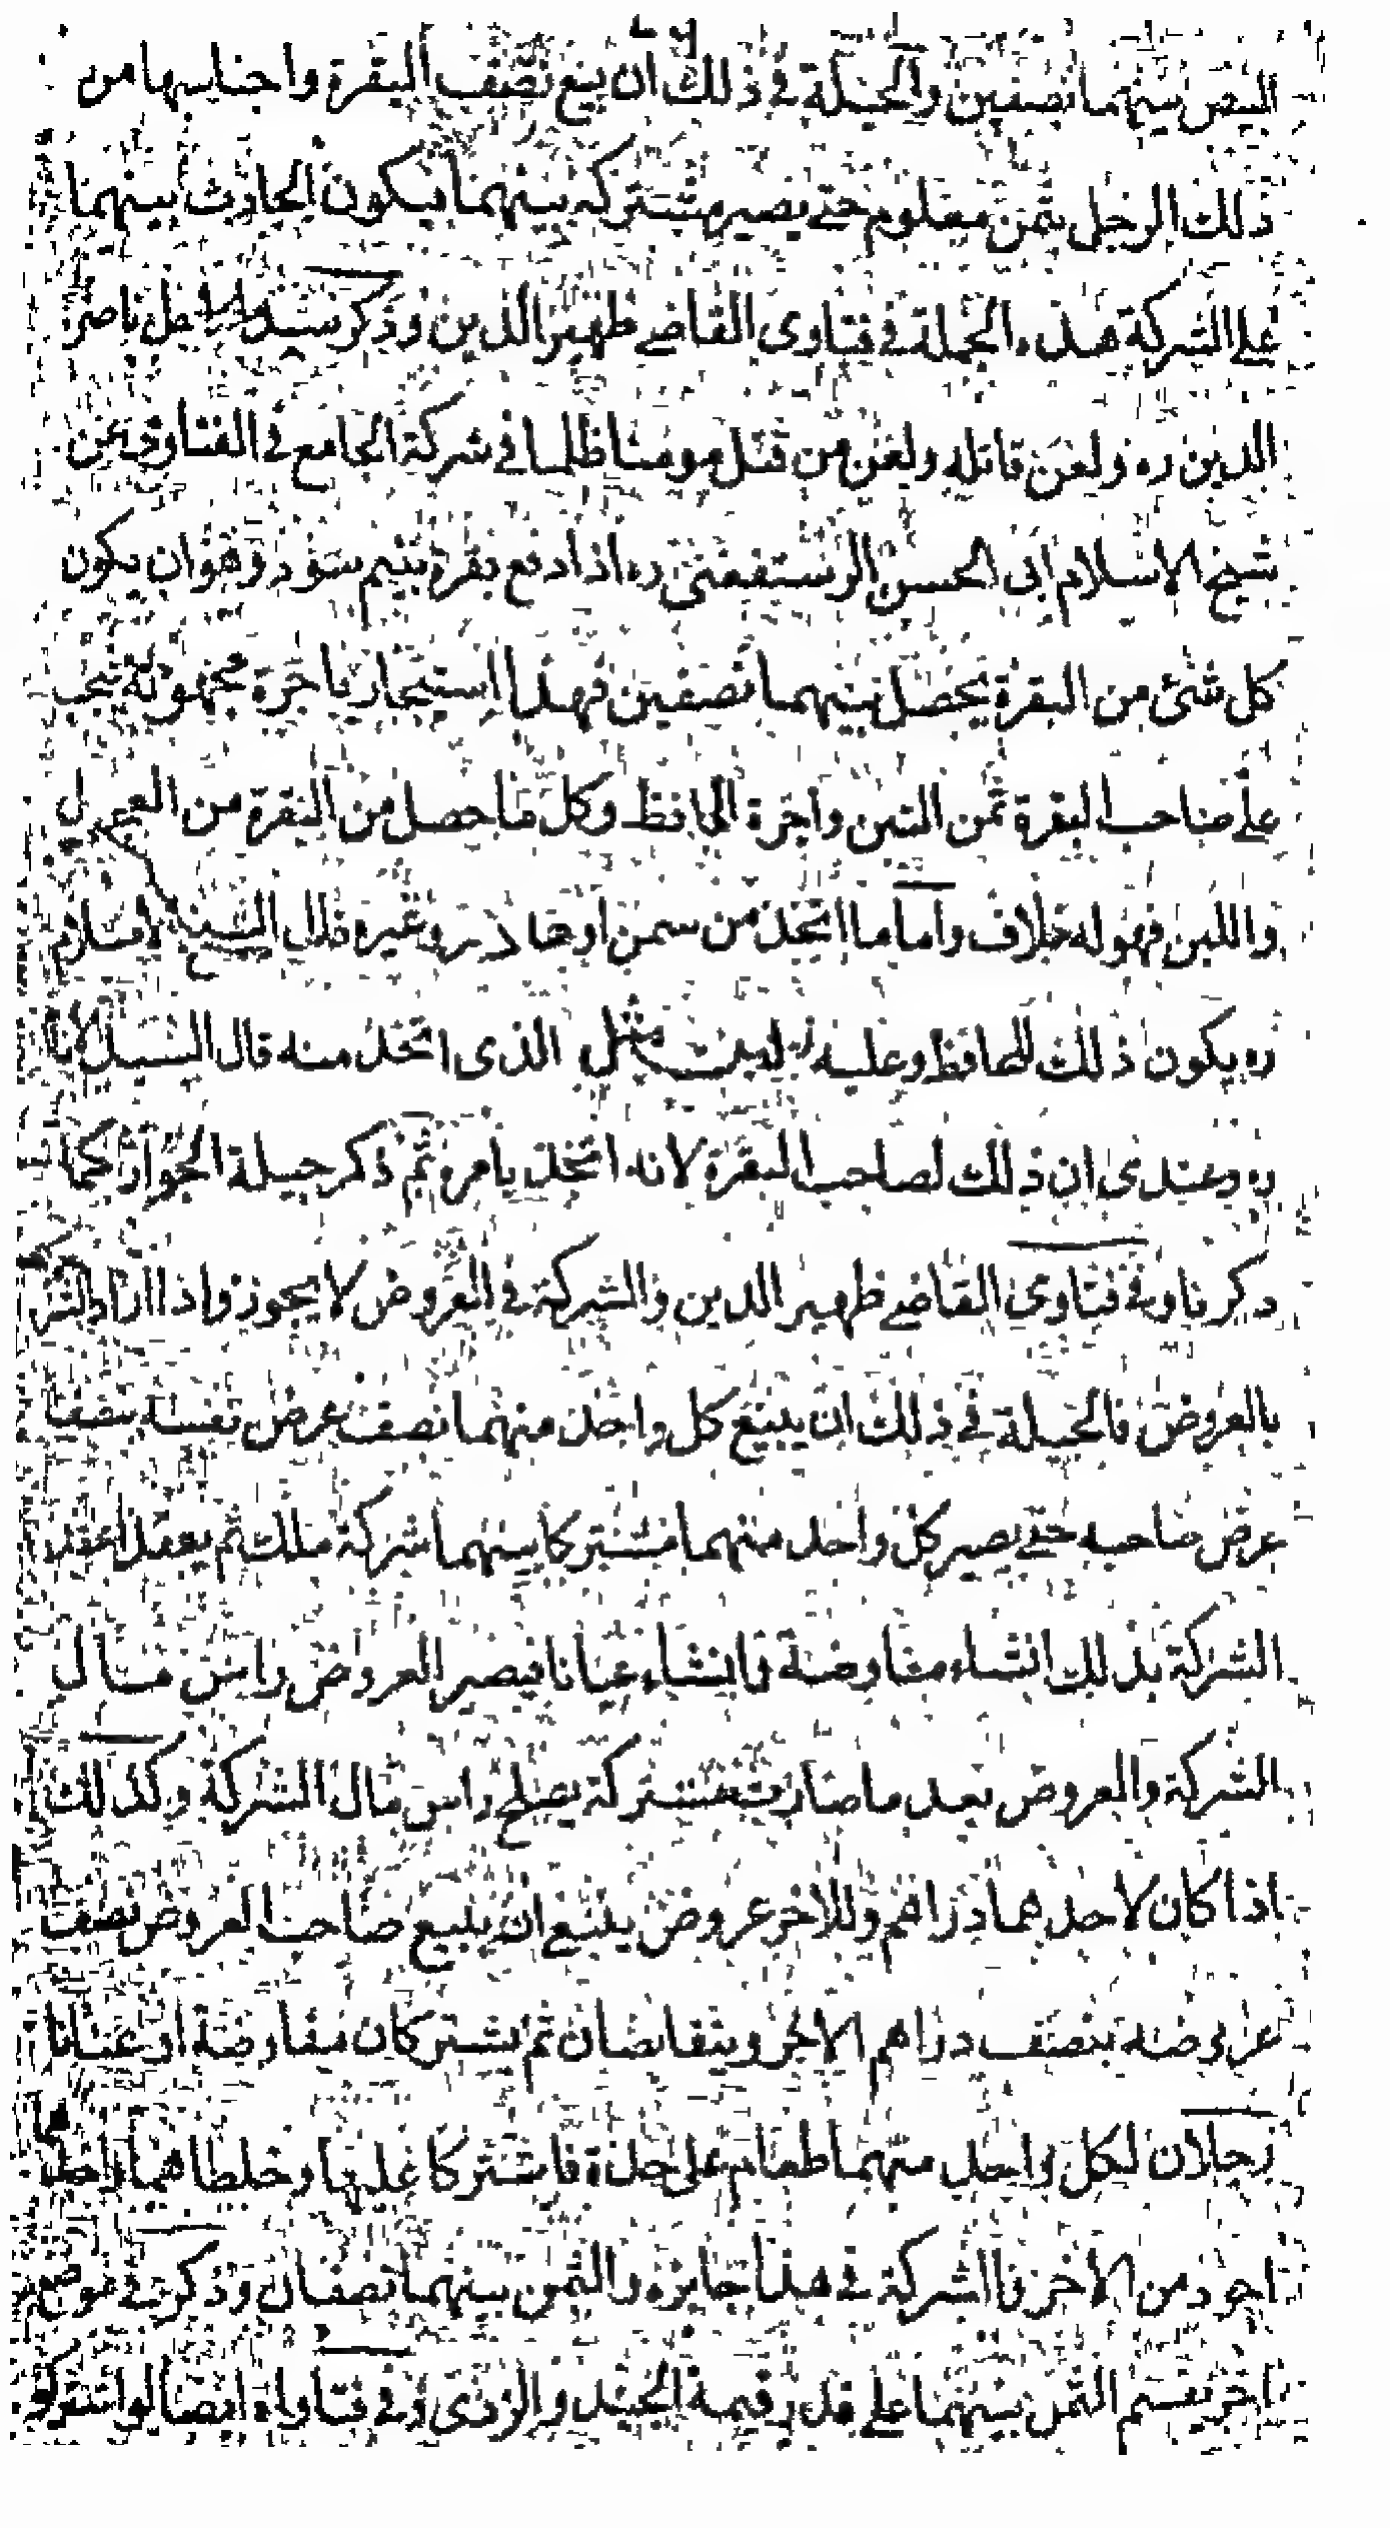 البيض بينهما نصفين والحيلة في ذلك ان يبيع نصف البقرة واجناسها من
ذلك الرجل بثمن معلوم حتى يصير مشتركه بينهما فيكون الحادث بينهما
على الشركة هذه الجملة في فتاوى القاضي ظهير الدين وذكر ناصر
الدين ره ولعن قاتله ولعن من قتل مومنا ظلما في شركة الجامع في الفتاوى عن
شيخ الاسلام ابى الحسن الرستفغنى ره اذا دفع بقرة بنيم سود وهو ان يكون
كل شئ من البقرة يحصل بينهما نصفين فهذا استيجار باجرة مجهولة يجب
على صاحب البقرة ثمن التبن واجرة الحافظ وكل ما حصل من البقرة من العجول
واللبن فهو له خلاف واما ما اتخذ من سمن او وغيره قال الشيخ الاسلام
ره يكون ذلك للحافظ وعليه مثل الذى اتخذ منه قال السيد الامام
ره وعندى ان ذلك لصاحب البقرة لانه اتخذ بامره ثم ذكر حيلة الجواز كما
ذكرنا وفي فتاوى القاضي ظهير الدين والشركة في العروض لا يجوز واذا ارادا
بالعروض فالحيلة في ذلك ان يبيع كل واحد منهما نصف عرض نفسه بنصف
عرض صاحبه حتى يصير كل واحد منهما مشتركا بينهما شركة ملك ثم يعقدا عقد
الشركة بذلك ان شاء مفاوضة فان شاء عنانا فيصير العروض راس مال
الشركة والعروض بعد ما صارت مشتركة يصلح راس مال الشركة وكذلك
اذا كان لاحدهما دراهم وللاخر عروض ينبغي ان يبيع صاحب العروض نصف
عروضه بنصف دراهم الاخر ويتقابضان ثم يشتركان مفاوضة او عنانا
رجلان لكل واحد منهما طعام على حدة فاشتركا عليها وخلطا هما واحد
اجود من الاخر فالشركة في هذا جايزة والثمن بينهما نصفان وذكر في موضع
اخر يقسم الثمن بينهما على قدر قيمة الجيد والردى وفي فتاواه ايضا لو اشتركا